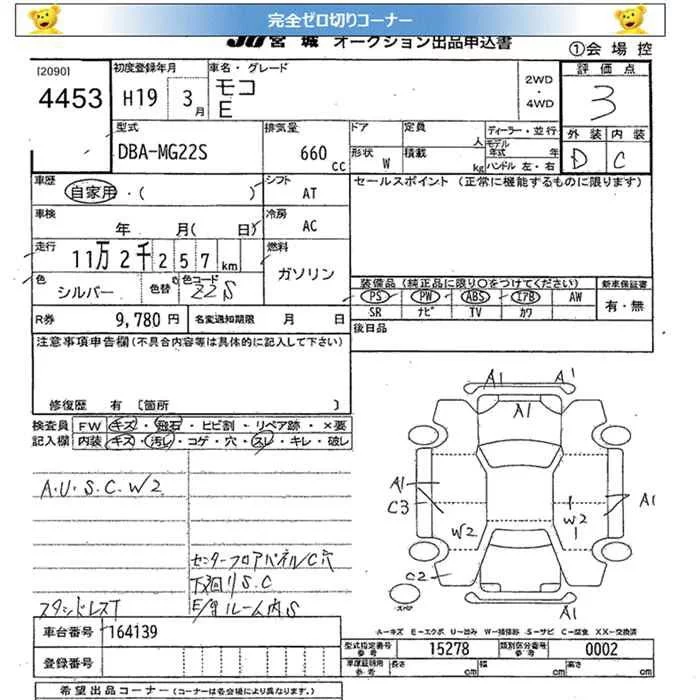 完全ゼロ切りコーナー
JU宮城 オークション出品申込書
①会場控
[2090]
4453
初度登録年月
H19 3月
車名・グレード
モコ
E
2WD
・
4WD
評価点
3
型式
DBA-MG22S
排気量
660 cc
ドア 定員 人
形状 W 積載 kg
ディーラー・並行
モデル年式 年
ハンドル 左・右
外装 内装
D C
車歴
自家用・( )
シフト
AT
セールスポイント (正常に機能するものに限ります)
車検
年 月( 日)
冷房
AC
走行
11万2千257km
燃料
ガソリン
色
シルバー
色替
色コード
ZZS
装備品 (純正品に限り○をつけてください)
新車保証書
PS PW ABS エアB AW
SR ナビ TV カワ
有・無
R券 9,780円
名変通知期限 月 日
後日品
注意事項申告欄(不具合内容等は具体的に記入して下さい)
修復歴 有 [箇所 ]
検査員記入欄
FW キズ・飛石・ヒビ割・リペア跡・×要
内装 キズ・汚レ・コゲ・穴・スレ・キレ・破レ
A1 A1
A1
A.U.S.C.W2
A1
C3
A1
W2
W2
センターフロアパネルC穴
下回りS.C
C2
スタッドレスT
E/gルーム内S
スペア
A1
A-キズ E-エクボ U-凹み W-補修跡 S-サビ C-腐食 XX-交換済
車台番号 164139
型式指定番号 参考 15278
類別区分番号 参考 0002
登録番号
車庫証明用 参考 長さ cm 幅 cm 高さ cm
希望出品コーナー (コーナーは各会場により異なります。)